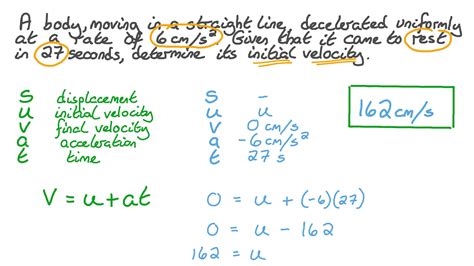 A body, moving in a straight line, decelerated uniformly
at a rate of 6 cm/s². Given that it came to rest
in 27 seconds, determine its initial velocity.
S displacement
u initial velocity
V final velocity
a acceleration
t time
S -
u
V 0 cm/s
a -6 cm/s²
t 27 s
162 cm/s
V = u + at
0 = u + (-6)(27)
0 = u - 162
162 = u